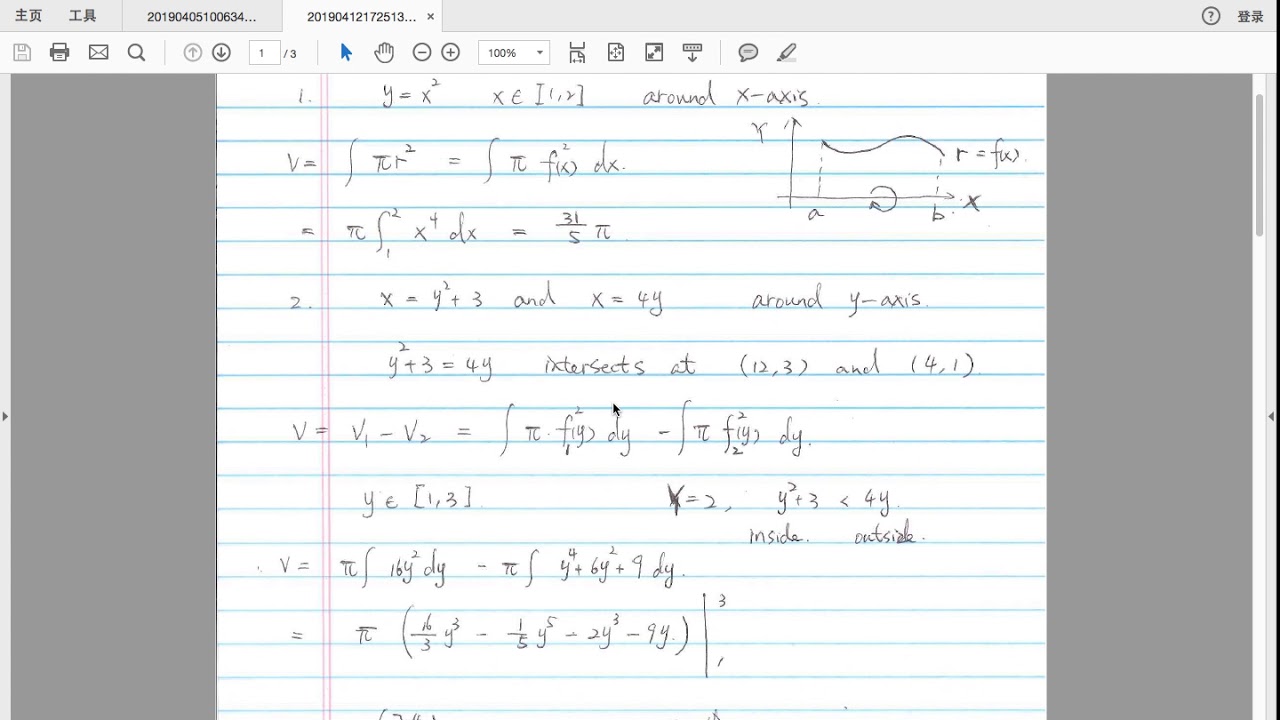 主页 工具 20190405100634... 20190412172513... × ? 登录
1 / 3 100%
1. y = x² x ∈ [1,2] around x-axis.
V = ∫ πr² = ∫ π f(x)² dx.
r r = f(x).
a b x
= π ∫₁² x⁴ dx = 31/5 π
2. x = y² + 3 and x = 4y around y-axis.
y² + 3 = 4y ixtersects at (12,3) and (4,1).
V = V₁ - V₂ = ∫ π · f₁(y)² dy - ∫ π f₂(y)² dy.
y ∈ [1,3] y = 2, y² + 3 < 4y.
inside. outside.
V = π∫ 16y² dy - π∫ y⁴ + 6y² + 9 dy.
= π (16/3 y³ - 1/5 y⁵ - 2y³ - 9y.) |₁³